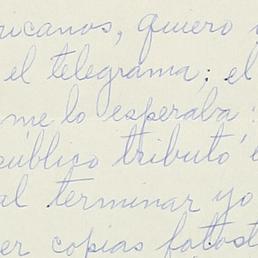 ricanos, quiero
el telegrama; el
me lo esperaba
público tributó
al terminar yo
er copias fotost